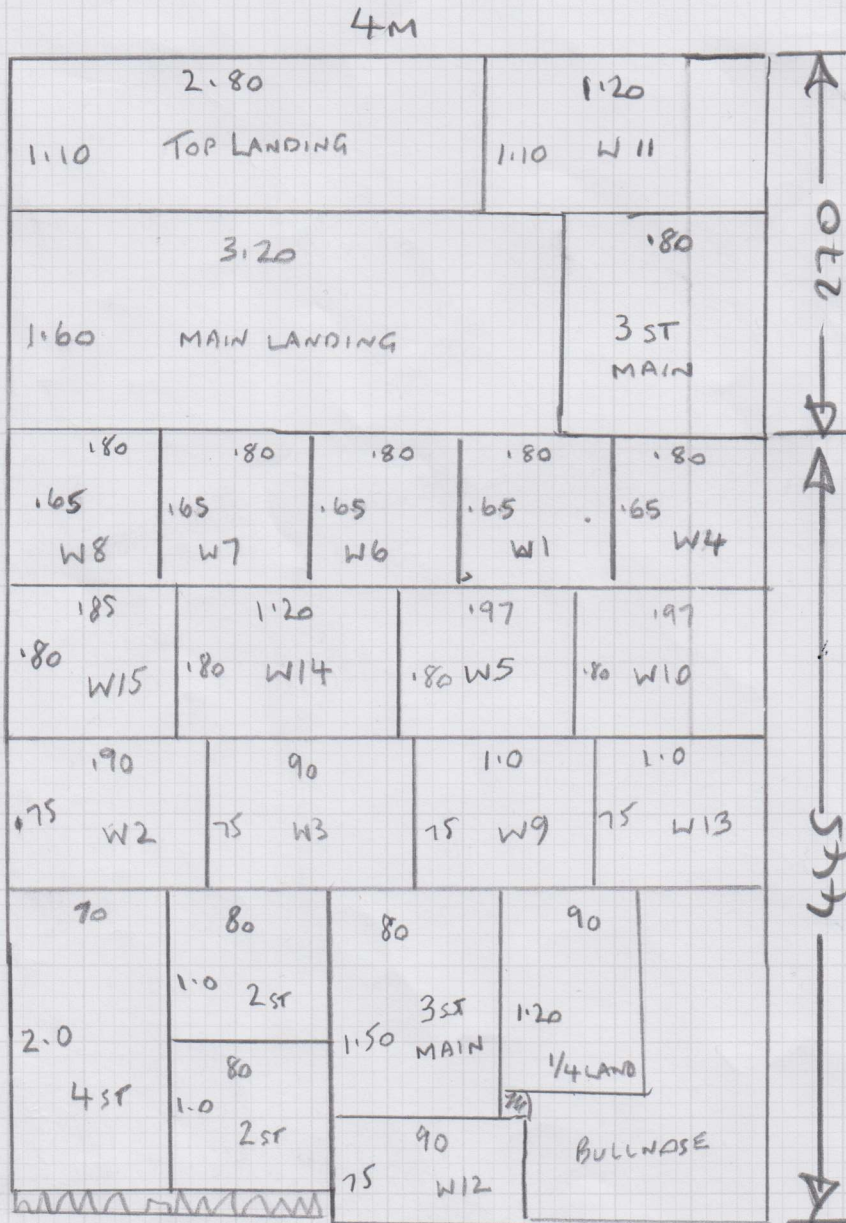 4M
2.80
TOP LANDING
1.10
1.20
1.10 W11
270
3.20
1.60 MAIN LANDING
.80
3 ST
MAIN
.80
.65
W8
.80
.65
W7
.80
.65
W6
.80
.65
W1
.80
.65
W4
.85
.80
W15
1.20
.80 W14
.97
.80 W5
.97
.80 W10
445
.90
.75 W2
90
75 W3
1.0
75 W9
1.0
75 W13
70
2.0
4 ST
80
1.0 2 ST
80
1.0
2 ST
80
1.50 3 ST
MAIN
90
1.20
1/4 LAND
90
75 W12
BULLNOSE